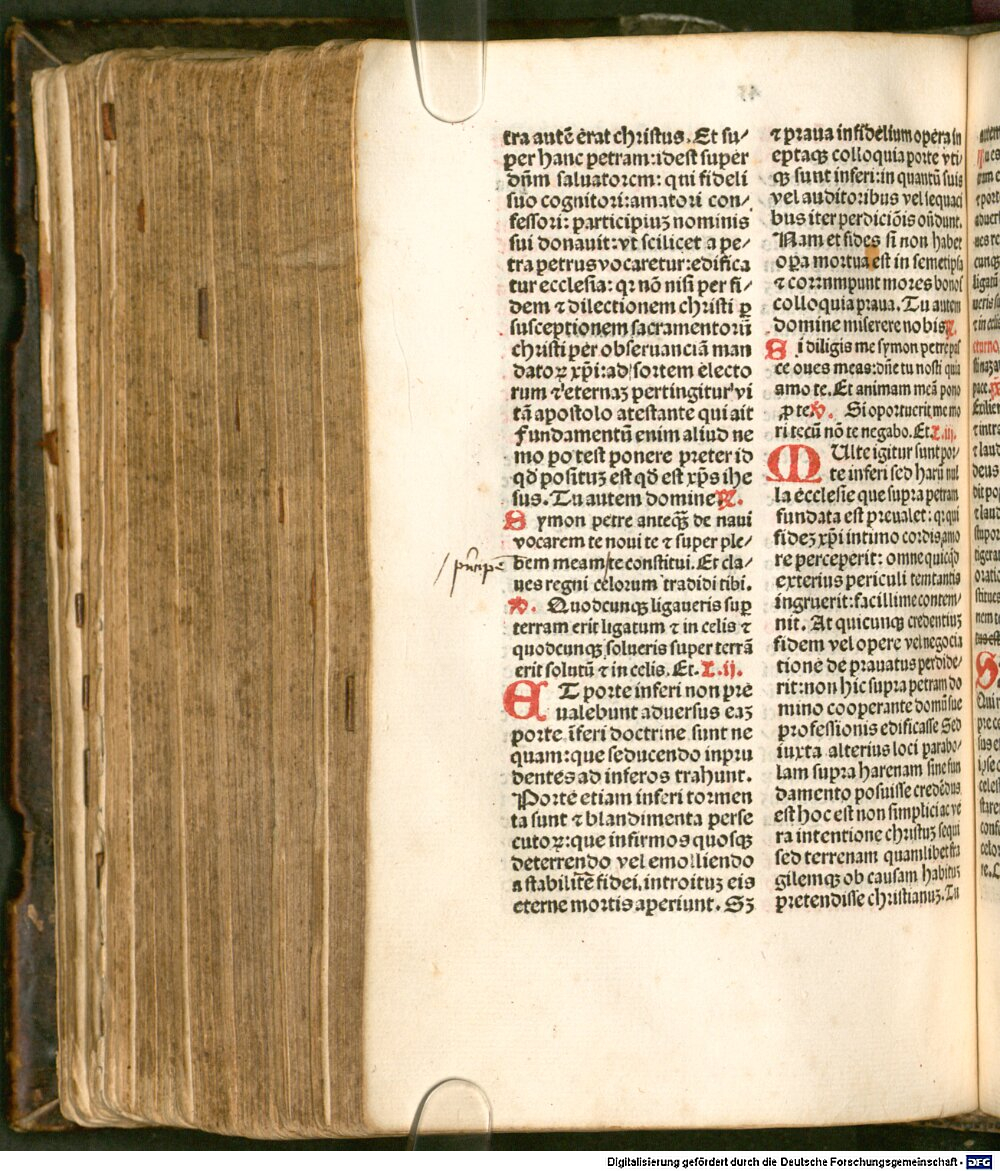 tra autē erat christus. Et su⸗
per hanc petram: idest super
dn̄m saluatorem: qui fideli
suo cognitori: amatori con⸗
fessori: participiuʒ nominis
sui donauit: vt scilicet a pe⸗
tra petrus vocaretur: edifica
tur ecclesia: qꝛ nō nisi per fi⸗
dem ⁊ dilectionem christi ꝑ
susceptionem sacramentorū
christi per obseruanciā man
datoꝝ xp̄i: ad sortem electo
rum ⁊ eternaʒ pertingitur vi
tā apostolo atestante qui ait
Fundamentū enim aliud ne
mo potest ponere preter id
qd̄ posituʒ est qd̄ est xp̄s ihe
sus. Tu autem domine ℟.
Symon petre anteqꝫ de naui
vocarem te noui te ⁊ super ple⸗
bem meam / te constitui. Et cla⸗
/ prīcipē
ues regni celorum tradidi tibi.
℣. Quodcunqꝫ ligaueris suꝑ
terram erit ligatum ⁊ in celis ⁊
quodcunqꝫ solueris super terrā
erit solutū ⁊ in celis. Et. L. ij.
ET porte inferi non pre
ualebunt aduersus eaʒ
porte īferi doctrine sunt ne
quam: que seducendo inpru
dentes ad inferos trahunt.
Porte etiam inferi tormen
ta sunt ⁊ blandimenta perse
cutoꝝ: que infirmos quosqꝫ
deterrendo vel emolliendo
a stabilitēe fidei, introituʒ eis
eterne mortis aperiunt. Sʒ
⁊ praua infidelium opera in
eptaqꝫ colloquia porte vti⸗
qꝫ sunt inferi: in quantū suis
vel auditoribus vel sequaci
bus iter perdiciōis on̄dunt.
Nam et fides si non habet
oꝑa mortua est in semetipsa
⁊ corrnmpunt mores bonos
colloquia praua. Tu autem
domine miserere nobis ℟.
Si diligis me symon petre pas
ce oues meas: dn̄e tu nosti quia
amo te. Et animam meā pono
ꝓ te. ℣. Si oportuerit me mo
ri tecū nō te negabo. Et. L. iij.
MUlte igitur sunt por⸗
te inferi sed harū nul
la ecclesie que supra petram
fundata est preualet: qꝛ qui
fideʒ xp̄i intimo cordis amo
re perceperit: omne quicqd
exterius periculi temtantis
ingruerit: facillime contem⸗
nit. At quicunqꝫ credentiuʒ
fidem vel opere vel negocia
tione deprauatus perdide⸗
rit: non hic supra petram do
mino cooperante domū sue
professionis edificasse Sed
iuxta alterius loci parabo⸗
lam supra harenam sine fun
damento posuisse credēdus
est hoc est non simplici ac ve
ra intentione christuʒ sequi
sed terrenam quamlibet fra
gilemqꝫ ob causam habituʒ
pretendisse christianuʒ. Tu
Digitalisierung gefördert durch die Deutsche Forschungsgemeinschaft - DFG